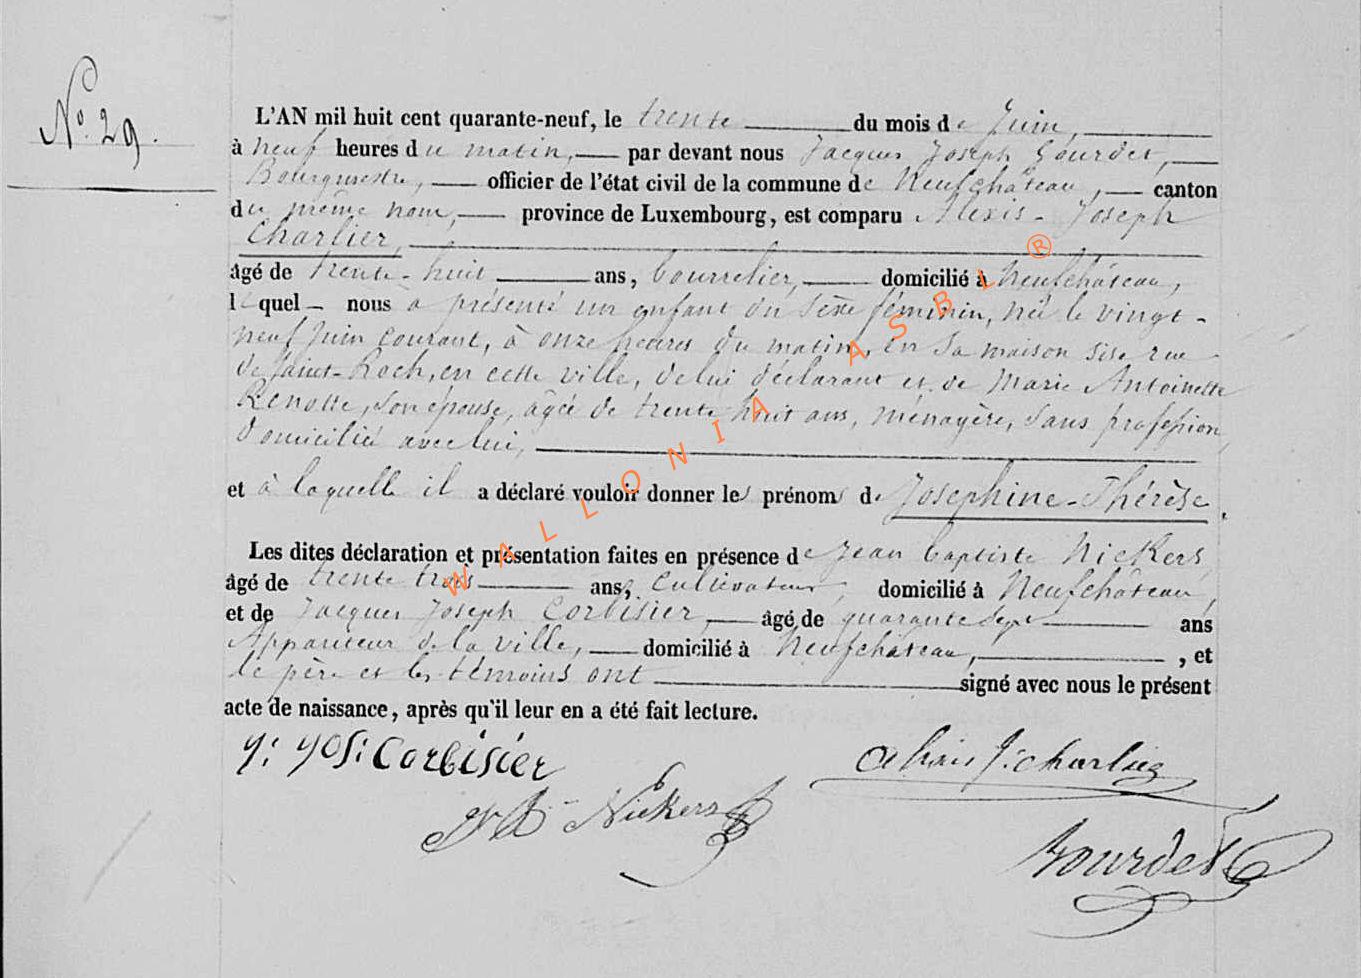 N°. 29.
L'AN mil huit cent quarante-neuf, le trente du mois de Juin,
à neuf heures du matin, par devant nous Jacques Joseph Gourdet,
Bourgmestre, officier de l'état civil de la commune de Neufchâteau, canton
du même nom, province de Luxembourg, est comparu Alexis-Joseph
Charlier,
âgé de trente-huit ans, bourrelier, domicilié à Neufchâteau,
lequel nous a présenté un enfant du sexe féminin, né le vingt-
neuf Juin courant, à onze heures du matin, en sa maison sise rue
de Saint-Roch, en cette ville, de lui déclarant et de Marie Antoinette
Renotte, son épouse, âgée de trente huit ans, ménagère, sans profession,
domiciliée avec lui,
et à laquelle il a déclaré vouloir donner les prénoms de Josephine-Thérèse.
Les dites déclaration et présentation faites en présence de Jean baptiste Nickers,
âgé de trente trois ans, Cultivateur, domicilié à Neufchâteau,
et de Jacques Joseph Corbisier, âgé de quarante sept ans
Appariteur de la ville, domicilié à Neufchâteau, , et
le père et les témoins ont signé avec nous le présent
acte de naissance, après qu'il leur en a été fait lecture.
WALLONIA ASBL ®
J: Jos: Corbisier
alexis J: charlier
JB Nickers
Gourdet